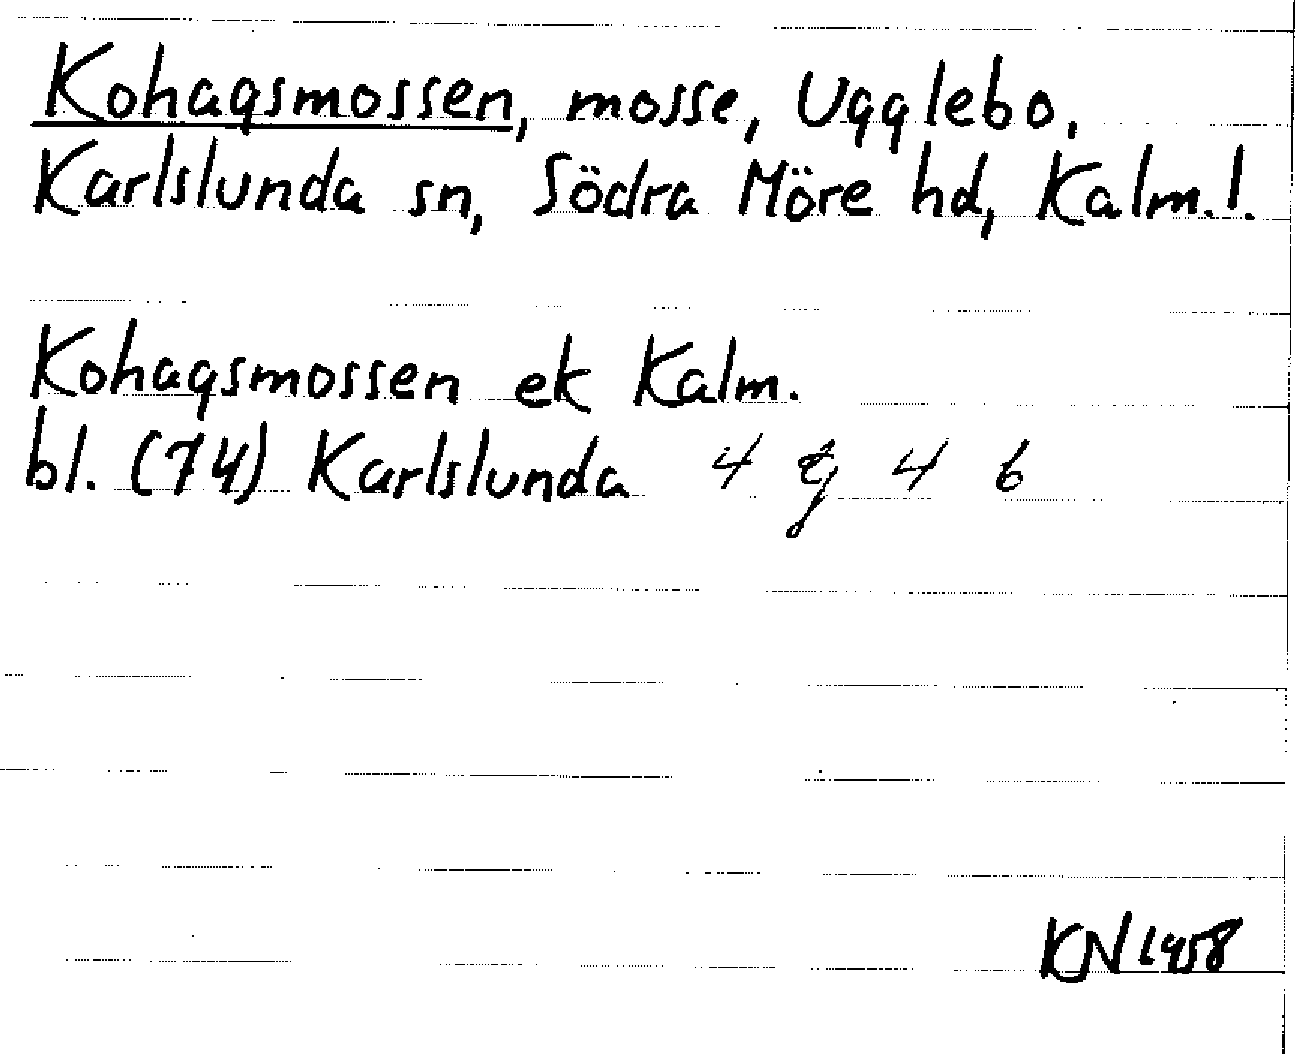 Kohagsmossen, mosse, Ugglebo,
Karlslunda sn, Södra Möre hd, Kalm.l.
Kohagsmossen ek Kalm.
bl. (74) Karlslunda 4 g 4 b
KN 1958